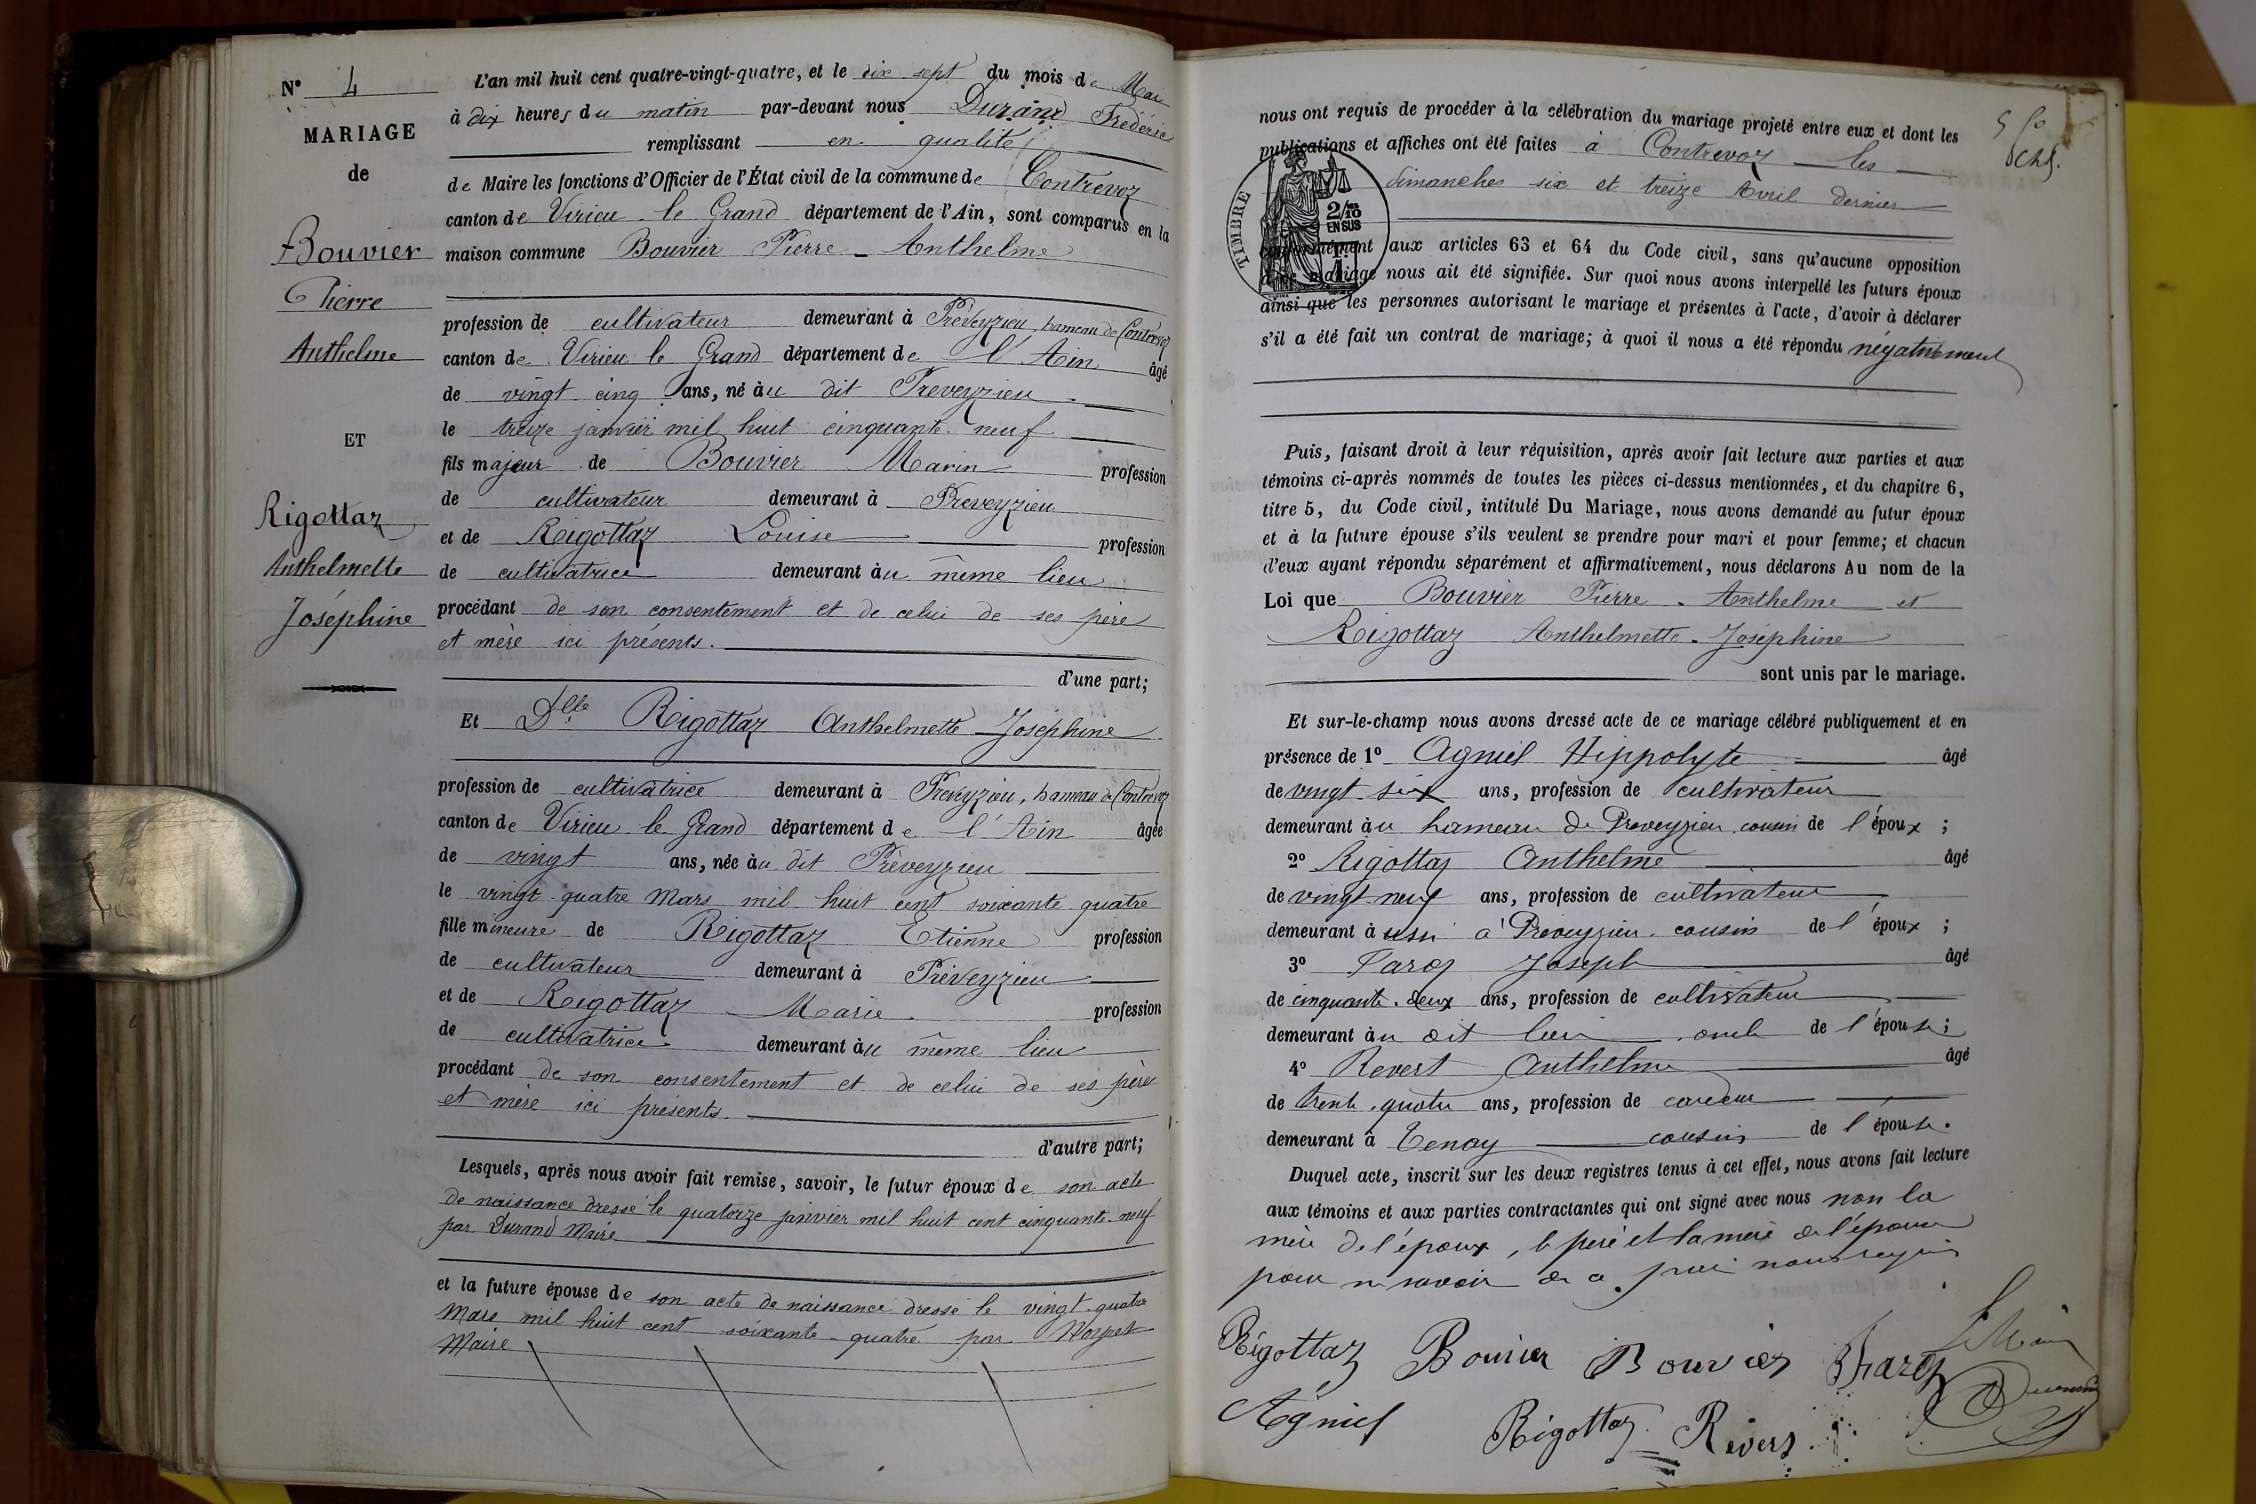 N° 4
MARIAGE
de
Bouvier
Pierre
Anthelme
ET
Rigottaz
Anthelmette
Joséphine
L'an mil huit cent quatre-vingt-quatre, et le dix sept du mois de Mai
à dix heures du matin par-devant nous Durand Frédéric
remplissant en qualité
de Maire les fonctions d'Officier de l'État civil de la commune de Contrevoz
canton de Virieu le Grand département de l'Ain, sont comparus en la
maison commune Bouvier Pierre - Anthelme
profession de cultivateur demeurant à Prèveyzieu, hameau de Contrevoz
canton de Virieu le Grand département de l'Ain âgé
de vingt cinq ans, né au dit Preveyzieu
le treize janvier mil huit cinquante neuf
fils majeur de Bouvier Marin profession
de cultivateur demeurant à Preveyzieu
et de Rigottaz Louise profession
de cultivatrice demeurant au même lieu
procédant de son consentement et de celui de ses père
et mère ici présents.
d'une part;
Et Dlle Rigottaz Anthelmette Joséphine
profession de cultivatrice demeurant à Preveyzieu, hameau de Contrevoz
canton de Virieu le Grand département de l'Ain âgée
de vingt ans, née au dit Prèveyzieu
le vingt quatre Mars mil huit cent soixante quatre
fille mineure de Rigottaz Etienne profession
de cultivateur demeurant à Prèveyzieu
et de Rigottaz Marie profession
de cultivatrice demeurant au même lieu
procédant de son consentement et de celui de ses père
et mère ici présents.
d'autre part;
Lesquels, après nous avoir fait remise, savoir, le futur époux de son acte
de naissance dressé le quatorze janvier mil huit cent cinquante-neuf
par Durand Maire
et la future épouse de son acte de naissance dressé le vingt quatre
Mars mil huit cent soixante-quatre par
Maire
nous ont requis de procéder à la célébration du mariage projeté entre eux et dont les
publications et affiches ont été faites à Contrevoz les
dimanches six et treize Avril dernier
TIMBRE
2/10
EN SUS
conformément aux articles 63 et 64 du Code civil, sans qu'aucune opposition
à ce mariage nous ait été signifiée. Sur quoi nous avons interpellé les futurs époux
ainsi que les personnes autorisant le mariage et présentes à l'acte, d'avoir à déclarer
s'il a été fait un contrat de mariage; à quoi il nous a été répondu négativement
Puis, faisant droit à leur réquisition, après avoir fait lecture aux parties et aux
témoins ci-après nommés de toutes les pièces ci-dessus mentionnées, et du chapitre 6,
titre 5, du Code civil, intitulé Du Mariage, nous avons demandé au futur époux
et à la future épouse s'ils veulent se prendre pour mari et pour femme; et chacun
d'eux ayant répondu séparément et affirmativement, nous déclarons Au nom de la
Loi que Bouvier Pierre - Anthelme et
Rigottaz Anthelmette - Joséphine
sont unis par le mariage.
Et sur-le-champ nous avons dressé acte de ce mariage célébré publiquement et en
présence de 1° Agniel Hippolyte âgé
de vingt six ans, profession de cultivateur
demeurant au hameau de Preveyzieu cousin de l'époux ;
2° Rigottaz Anthelme âgé
de vingt neuf ans, profession de cultivateur
demeurant aussi à Prèveyzieu cousin de l'époux ;
3° Joseph âgé
de cinquante deux ans, profession de cultivateur
demeurant au dit lieu oncle de l'épouse ;
4° Revert Anthelme âgé
de trente quatre ans, profession de cardeur
demeurant à Tenay cousin de l'épouse.
Duquel acte, inscrit sur les deux registres tenus à cet effet, nous avons fait lecture
aux témoins et aux parties contractantes qui ont signé avec nous non la
mère de l'époux, le père et la mère de l'épouse
pour ne savoir de ce requis
Le Maire
Rigottaz Bouvier Bouvier
Agniel Rigottaz